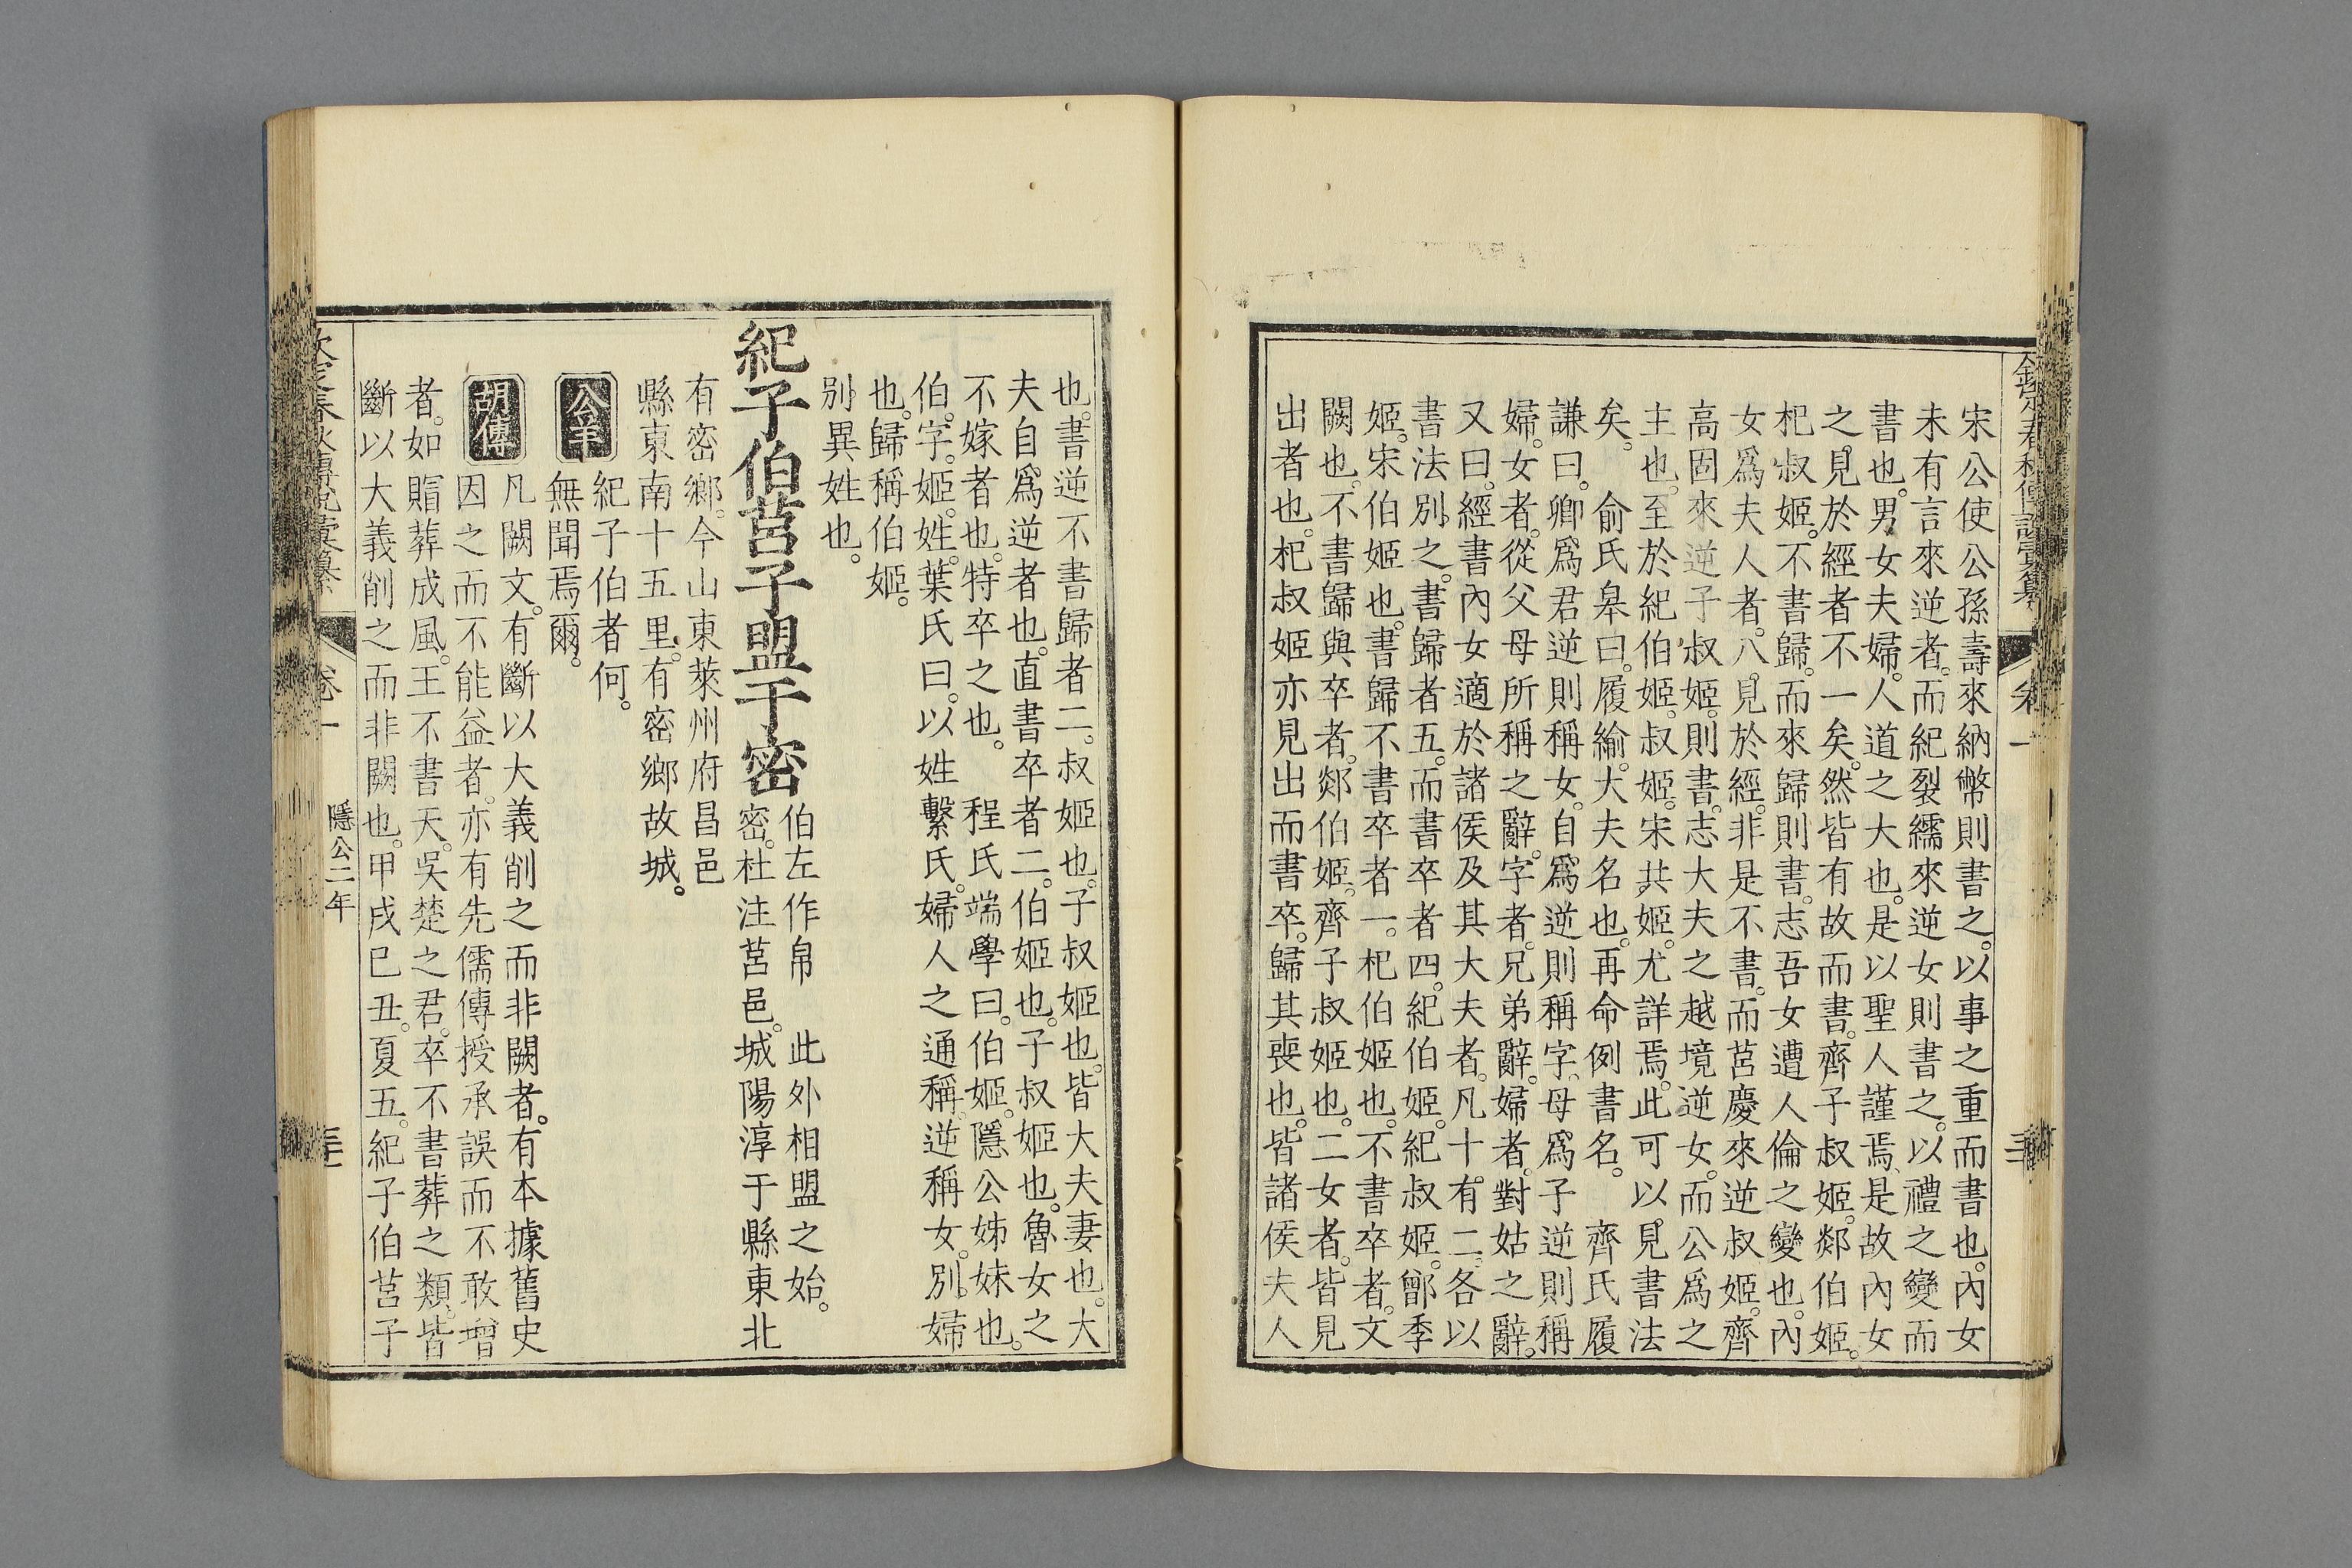 宋公使公孫壽來納幣則書之以事之重而書也內女
未有言來逆者而紀裂繻來逆女則書之以禮之變而
書也男女夫婦人道之大也是以聖人謹焉是故內女
之見於經者不一矣然皆有故而書齊子叔姬郯伯姬
杞叔姬不書歸而來歸則書志吾女遭人倫之變也內
女爲夫人者八見於經非是不書而莒慶來逆叔姬齊
高固來逆子叔姬則書志大夫之越境逆女而公爲之
主也至於紀伯姬叔姬宋共姬尤詳焉此可以見書法
矣 俞氏皋曰履緰大夫名也再命例書名 齊氏履
謙曰卿爲君逆則稱女自爲逆則稱字母爲子逆則稱
婦女者從父母所稱之辭字者兄弟辭婦者對姑之辭
又曰經書內女適於諸侯及其大夫者凡十有二各以
書法別之書歸者五而書卒者四紀伯姬紀叔姬鄫季
姬宋伯姬也書歸不書卒者一杞伯姬也不書卒者文
闕也不書歸與卒者郯伯姬齊子叔姬也二女者皆見
出者也杞叔姬亦見出而書卒歸其喪也皆諸侯夫人
也書逆不書歸者二叔姬也子叔姬也皆大夫妻也大
夫自爲逆者也直書卒者二伯姬也子叔姬也魯女之
不嫁者也特卒之也 程氏端學曰伯姬隱公姊妹也
伯字姬姓葉氏曰以姓繫氏婦人之通稱逆稱女別婦
也歸稱伯姬
別異姓也
紀子伯莒子盟于密
伯左作帛 此外相盟之始
密杜注莒邑城陽淳于縣東北
有密鄉今山東萊州府昌邑
縣東南十五里有密鄉故城
公羊
紀子伯者何
無聞焉爾
胡傳
凡闕文有斷以大義削之而非闕者有本據舊史
因之而不能益者亦有先儒傳授承誤而不敢增
者如賵葬成風王不書天吳楚之君卒不書葬之類皆
斷以大義削之而非闕也甲戌己丑夏五紀子伯莒子
隱公二年